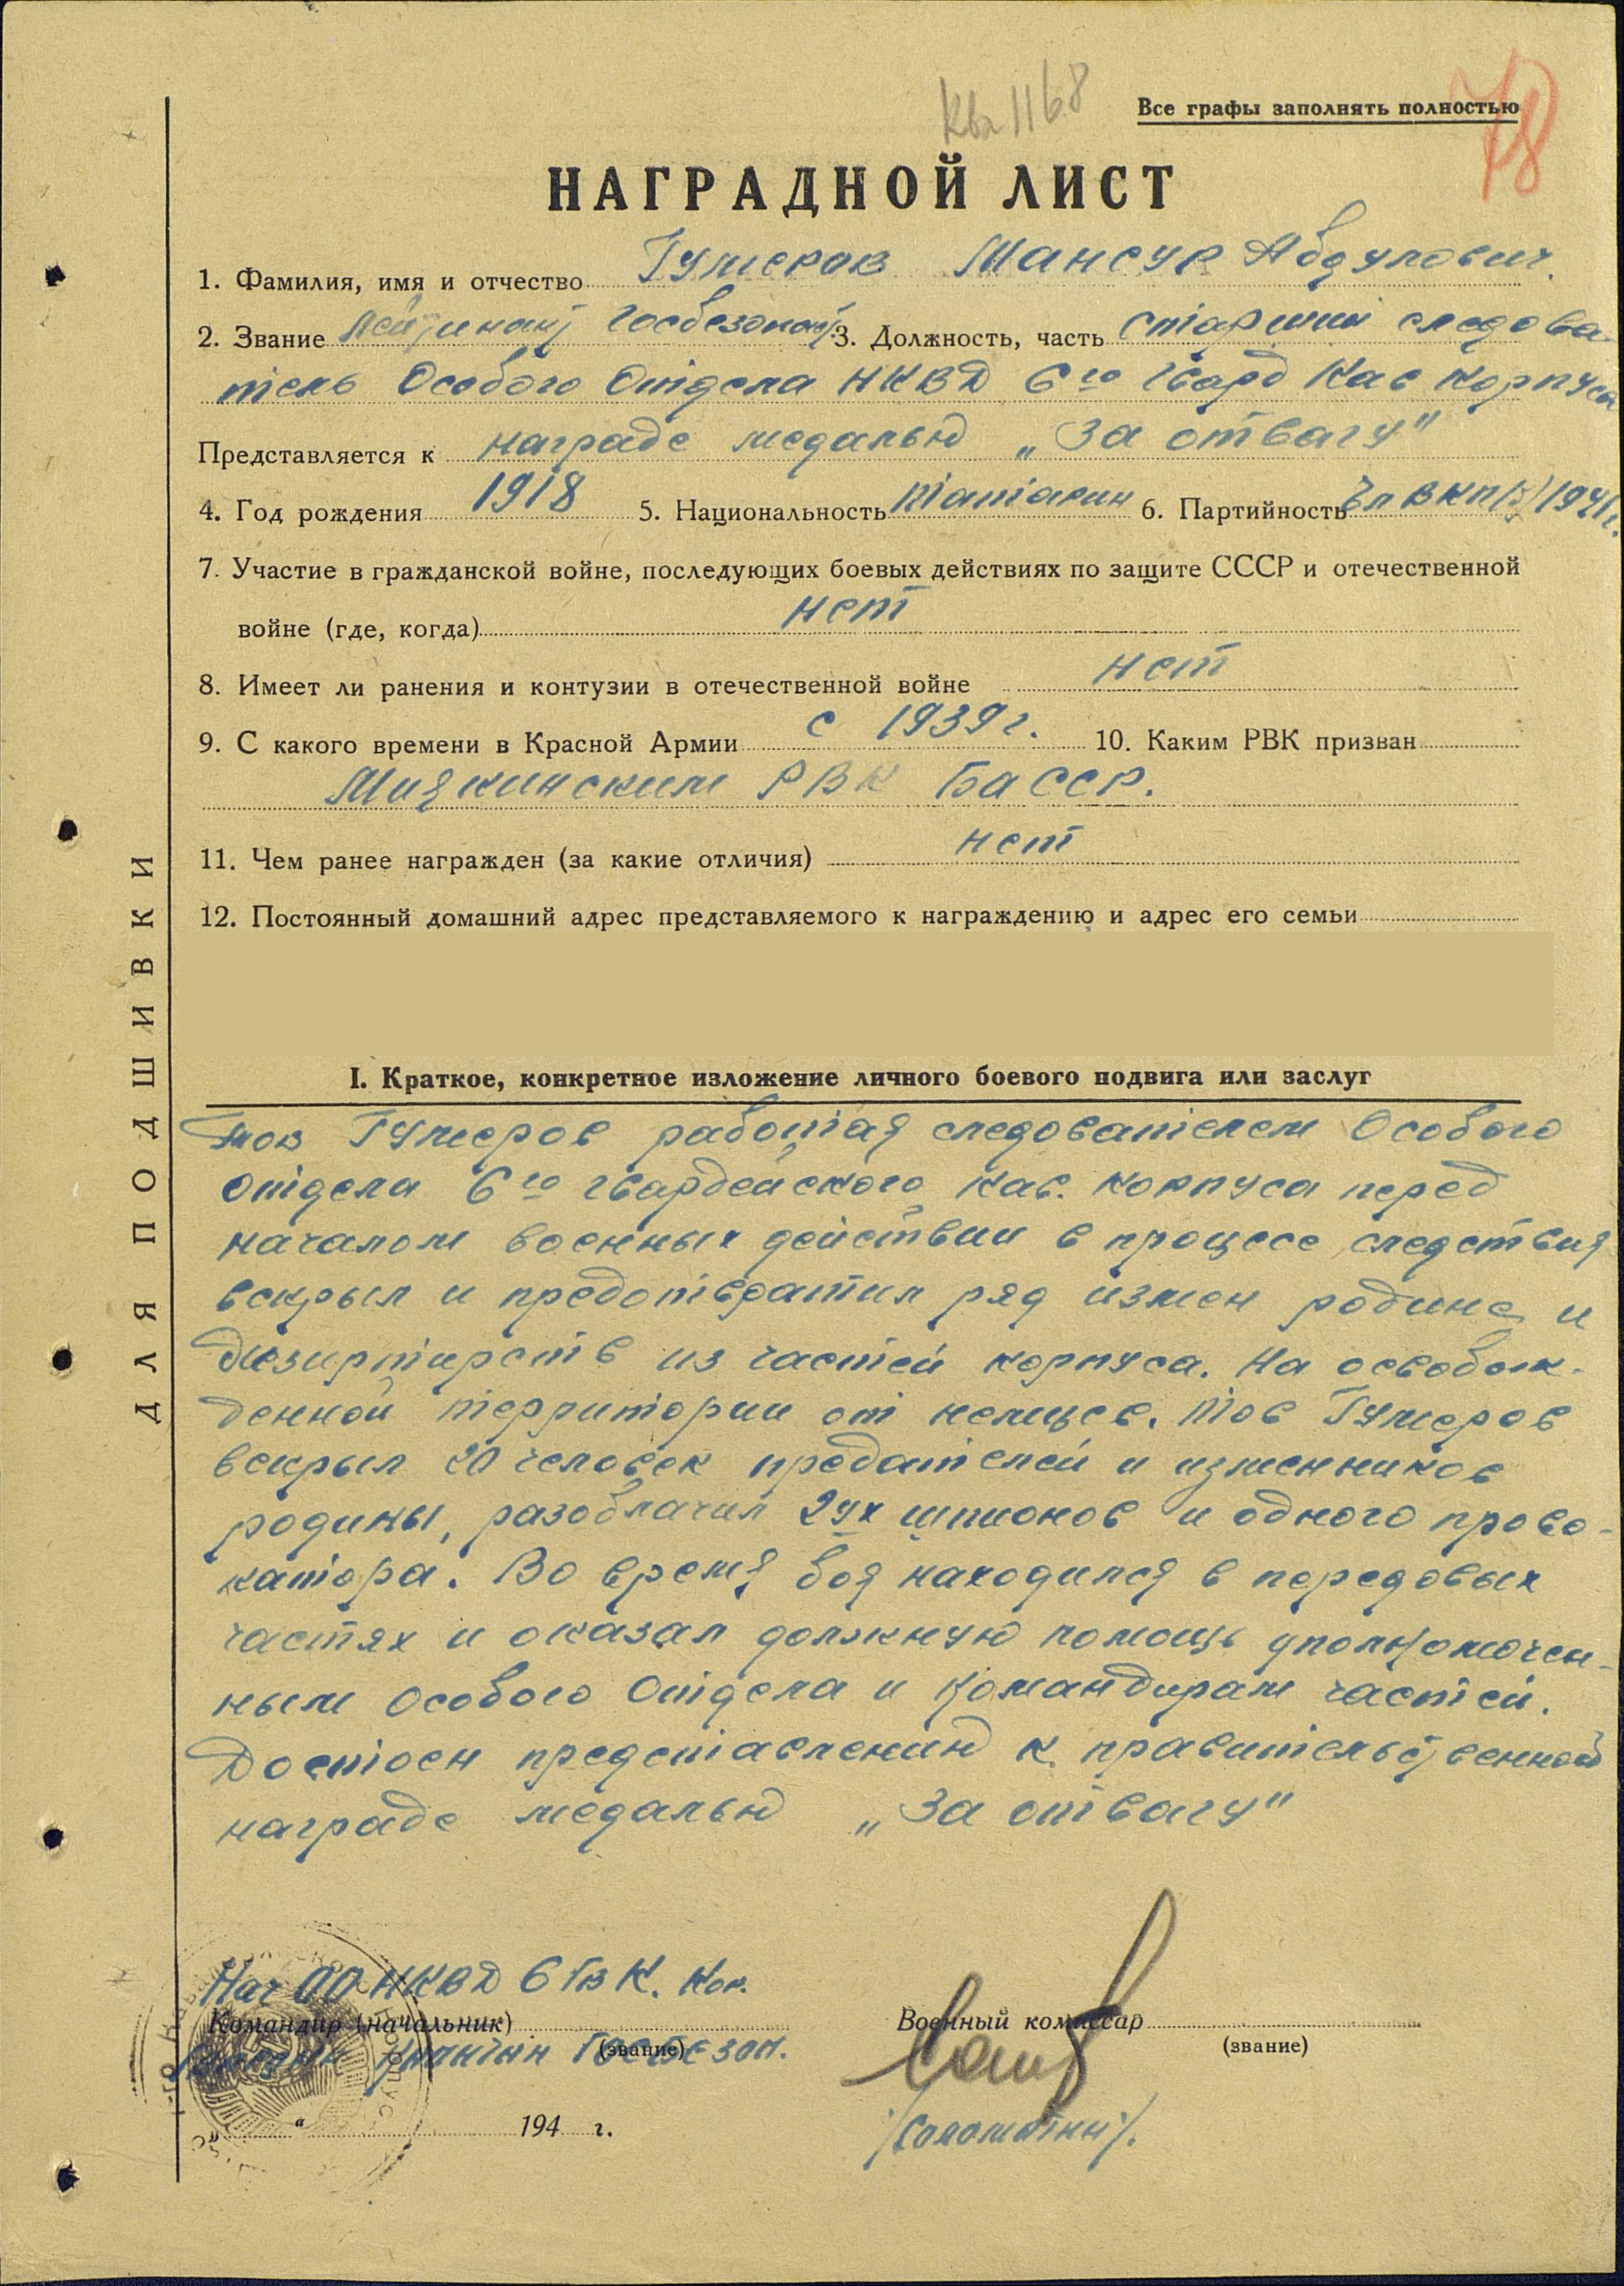 Ква 1168
Все графы заполнять полностью
78
НАГРАДНОЙ ЛИСТ
1. Фамилия, имя и отчество Гумеров Мансур Абдулович.
2. Звание лейтинант Госбезопас. 3. Должность, часть старший следова-
тель Особого Отдела НКВД 6го Гвард Кав корпуса
Представляется к награде медалью „За отвагу"
4. Год рождения 1918 5. Национальность татарин 6. Партийность чл ВКП(б) 1941г.
7. Участие в гражданской войне, последующих боевых действиях по защите СССР и отечественной
войне (где, когда) нет
8. Имеет ли ранения и контузии в отечественной войне нет
9. С какого времени в Красной Армии с 1939г. 10. Каким РВК призван
Миякинским РВК БаССР.
11. Чем ранее награжден (за какие отличия) нет
12. Постоянный домашний адрес представляемого к награждению и адрес его семьи
I. Краткое, конкретное изложение личного боевого подвига или заслуг
Тов Гумеров работая следователем Особого
Отдела 6го гвардейского кав. корпуса перед
началом военных действий в процессе следствия
вскрыл и предотвратил ряд измен родине и
дизиртирств из частей корпуса. На освобож-
денной территории от немцев. тов Гумеров
вскрыл 20 человек предателей и изменников
родины, разоблачил 2ух шпионов и одного прово-
катора. Во время боя находился в передовых
частях и оказал должную помощь уполномочен-
ным Особого Отдела и командирам частей.
Достоен представлению к правительственной
награде медалью „За отвагу"
Нач ОО НКВД 6 Гв К. Кор.
Командир (начальник)
Госбезоп.
(звание)
„ " 194 г.
Военный комиссар
(звание)
ДЛЯ ПОДШИВКИ